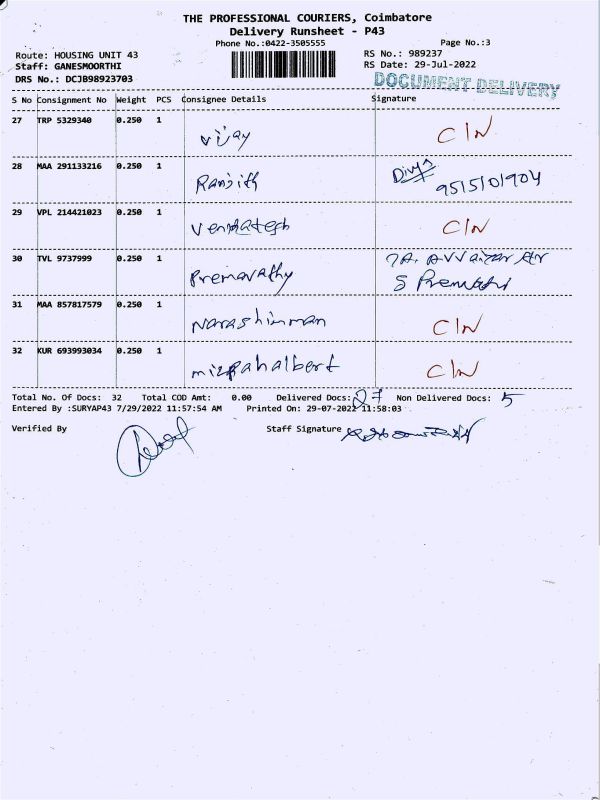 THE PROFESSIONAL COURIERS, Coimbatore
Delivery Runsheet - P43
Phone No.:0422-3505555 Page No.:3
Route: HOUSING UNIT 43 RS No.: 989237
Staff: GANESMOORTHI RS Date: 29-Jul-2022
DRS No.: DCJB98923703 DOCUMENT DELIVERY
S No Consignment No Weight PCS Consignee Details Signature
27 TRP 5329340 0.250 1 vijay C/N
28 MAA 291133216 0.250 1 Ranjith Divya 9515101904
29 VPL 214421023 0.250 1 Venkatesh C/N
30 TVL 9737999 0.250 1 Premavathy
31 MAA 857817579 0.250 1 Narashimman C/N
32 KUR 693993034 0.250 1 mizpahalbert C/N
Total No. Of Docs: 32 Total COD Amt: 0.00 Delivered Docs: 27 Non Delivered Docs: 5
Entered By :SURYAP43 7/29/2022 11:57:54 AM Printed On: 29-07-2022 11:58:03
Verified By Staff Signature